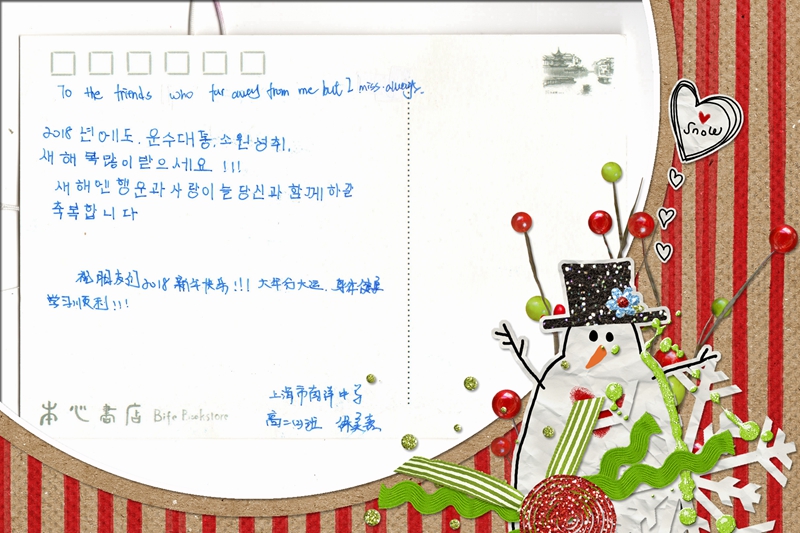 To the friends who far away from me but I miss always.
2018 년에도. 운수대통, 소원성취,
새해 복많이 받으세요 !!!
새해엔 행운과 사랑이 늘 당신과 함께하길
축복합니다
祝朋友们2018新年快乐!!! 大年行大运.
学习顺利!!!
上海市南洋中学
高二四班
本心書店 Bife Bookstore
snow